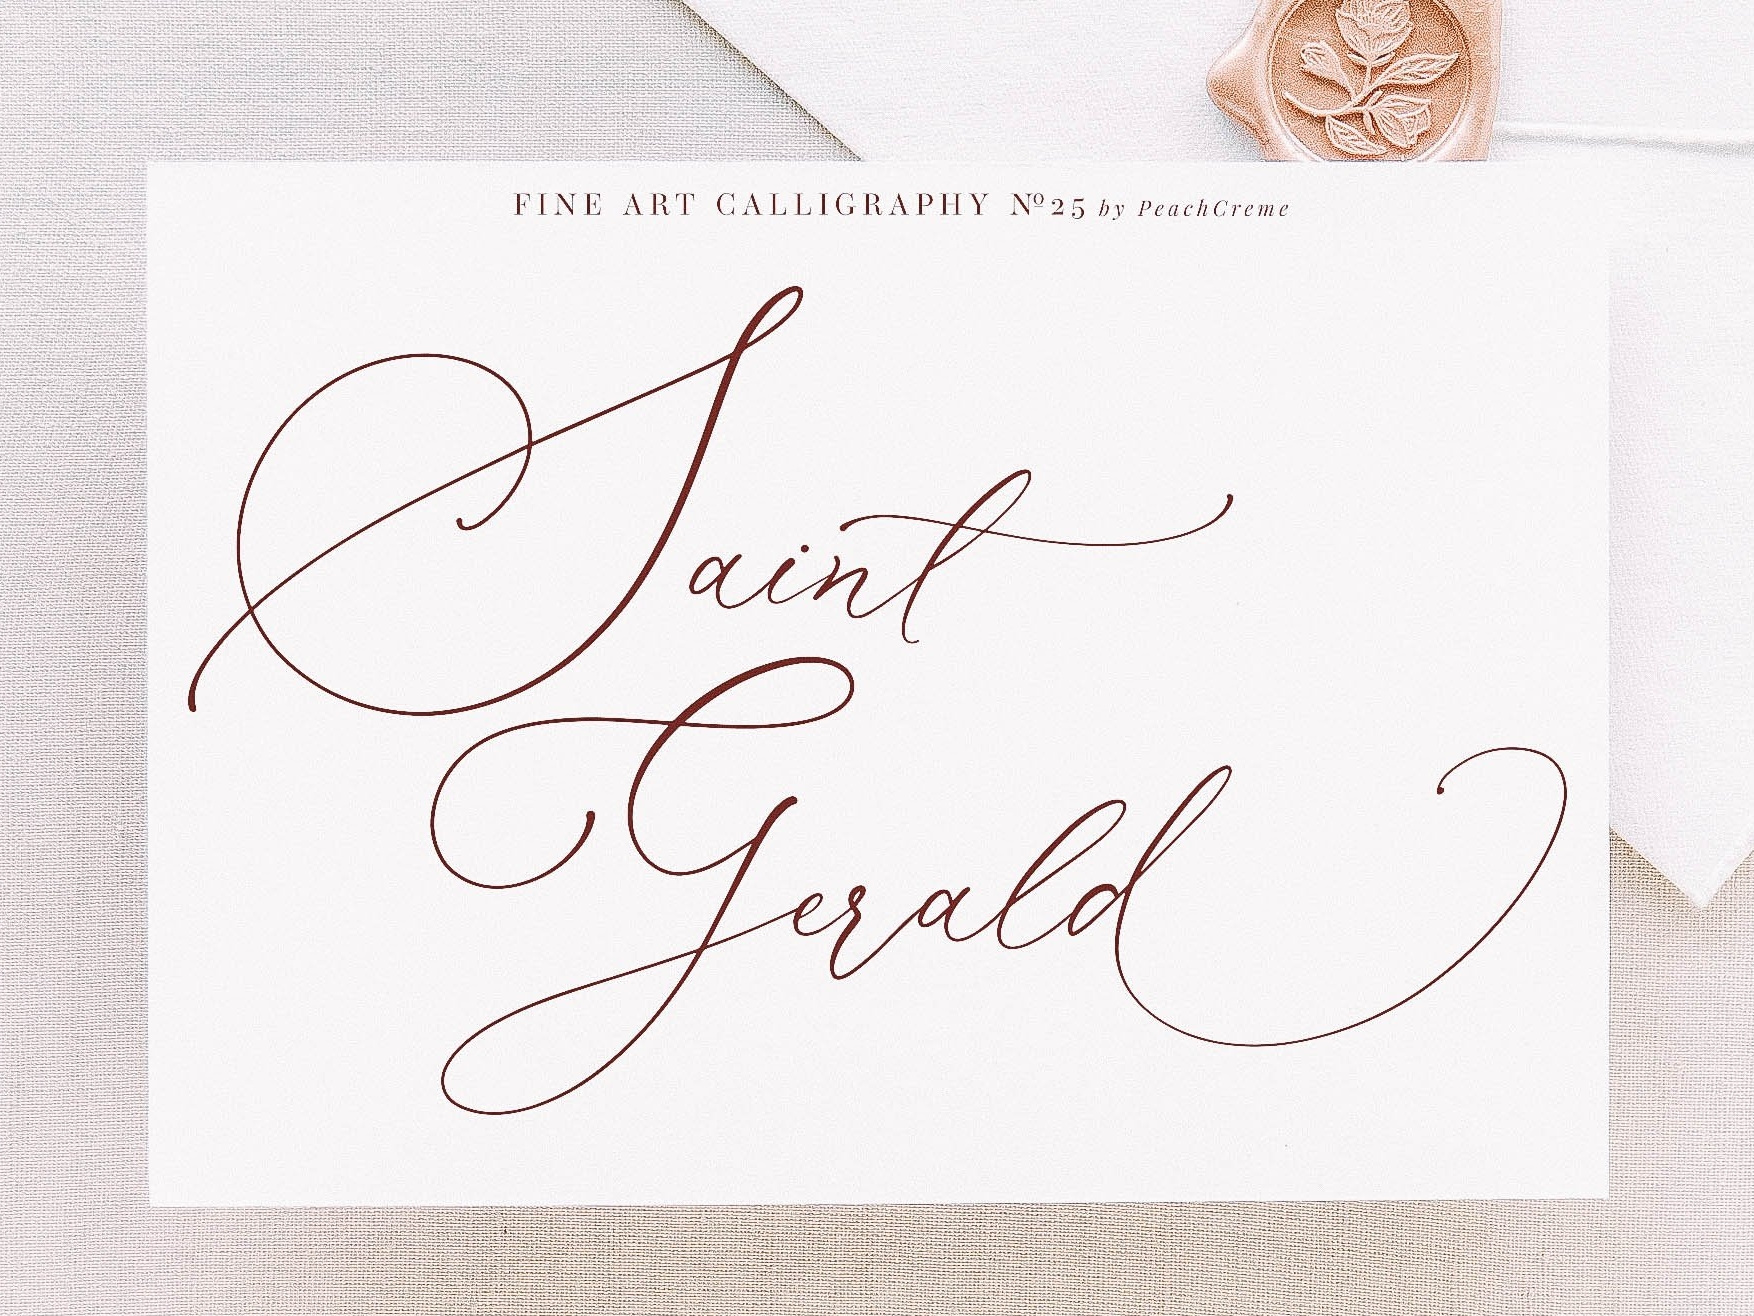 FINE ART CALLIGRAPHY Nº25 by PeachCreme
Saint
Gerald